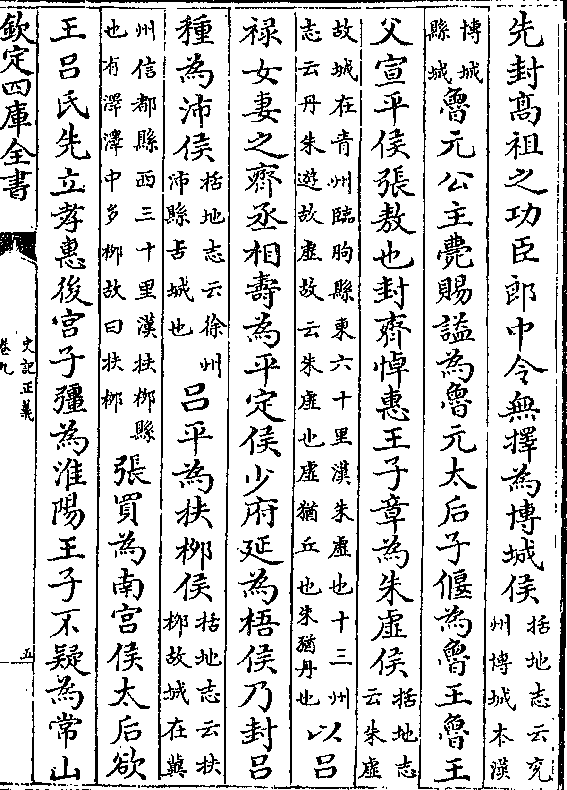 先封高祖之功臣郎中令無擇為博城侯括地志云兗州博城本漢
博城縣城魯元公主薨賜謚為魯元太后子偃為魯王魯王
父宣平侯張敖也封齊悼惠王子章為朱虛侯括地志云朱虛
故城在青州臨朐縣東六十里漢朱虛也十三州志云丹朱遊故虛故云朱虛也虛猶丘也朱猶丹也以呂
祿女妻之齊丞相壽為平定侯少府延為梧侯乃封呂
種為沛侯括地志云徐州沛縣古城也呂平為扶栁侯括地志云扶栁故城在冀
州信都縣西三十里漢扶栁縣也有澤澤中多栁故曰扶栁張買為南宮侯太后欲
王呂氏先立孝惠後宮子彊為淮陽王子不疑為常山
欽定四庫全書
史記正義
卷九
五